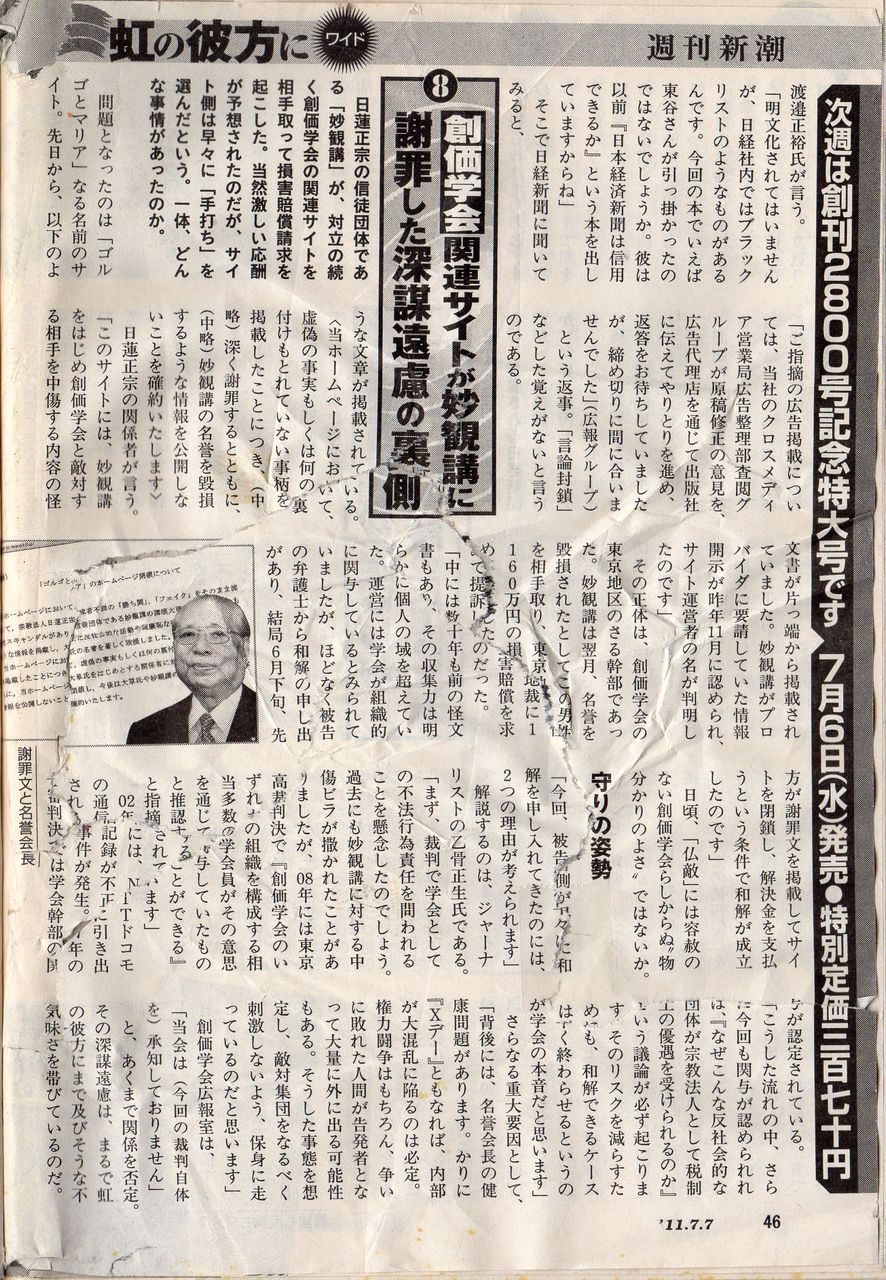 週刊新潮
ワイド
虹の彼方に
次週は創刊2800号記念特大号です
7月6日(水)発売●特別定価三百七十円
渡邉正裕氏が言う。
「明文化されてはいません
が、日経社内ではブラック
リストのようなものがある
んです。今回の本でいえば
東谷さんが引っ掛かったの
ではないでしょうか。彼は
以前『日本経済新聞は信用
できるか』という本を出し
ていますからね」
そこで日経新聞に聞いて
みると、
「ご指摘の広告掲載につい
ては、当社のクロスメディ
ア営業局広告整理部査閲グ
ループが原稿修正の意見を、
広告代理店を通じて出版社
に伝えてやりとりを進め、
返答をお待ちしていました
が、締め切りに間に合いま
せんでした」(広報グループ)
という返事。「言論封鎖」
などした覚えがないと言う
のである。
8
創価学会関連サイトが妙観講に
謝罪した深謀遠慮の裏側
日蓮正宗の信徒団体であ
る「妙観講」が、対立の続
く創価学会の関連サイトを
相手取って損害賠償請求を
起こした。当然激しい応酬
が予想されたのだが、サイ
ト側は早々に「手打ち」を
選んだという。一体、どん
な事情があったのか。
問題となったのは「ゴル
ゴとマリア」なる名前のサ
イト。先日から、以下のよ
うな文章が掲載されている。
〈当ホームページにおいて、
虚偽の事実もしくは何の裏
付けもとれていない事柄を
掲載したことにつき、(中
略)深く謝罪するとともに、
(中略)妙観講の名誉を毀損
するような情報を公開しな
いことを確約いたします〉
日蓮正宗の関係者が言う。
「このサイトには、妙観講
をはじめ創価学会と敵対す
る相手を中傷する内容の怪
文書が片っ端から掲載され
ていました。妙観講がプロ
バイダに要請していた情報
開示が昨年11月に認められ、
サイト運営者の名が判明し
たのです」
その正体は、創価学会の
東京地区のさる幹部であっ
た。妙観講は翌月、名誉を
毀損されたとしてこの男性
を相手取り、東京地裁に1
160万円の損害賠償を求
めて提訴したのだった。
「中には数十年も前の怪文
書もあり、その収集力は明
らかに個人の域を超えてい
た。運営には学会が組織的
に関与しているとみられて
いましたが、ほどなく被告
の弁護士から和解の申し出
があり、結局6月下旬、先
方が謝罪文を掲載してサイ
トを閉鎖し、解決金を支払
うという条件で和解が成立
したのです」
日頃、「仏敵」には容赦の
ない創価学会らしからぬ〝物
分かりのよさ〟ではないか。
守りの姿勢
「今回、被告側が早々に和
解を申し入れてきたのには、
2つの理由が考えられます」
解説するのは、ジャーナ
リストの乙骨正生氏である。
「まず、裁判で学会として
の不法行為責任を問われる
ことを懸念したのでしょう。
過去にも妙観講に対する中
傷ビラが撒かれたことがあ
りましたが、08年には東京
高裁判決で『創価学会のい
ずれかの組織を構成する相
当多数の学会員がその意思
を通じて関与していたもの
と推認することができる』
と指摘されています」
02年には、NTTドコモ
の通信記録が不正に引き出
される事件が発生。
審判決では学会幹部の関
与が認定されている。
「こうした流れの中、さら
に今回も関与が認められれ
ば、『なぜこんな反社会的な
団体が宗教法人として税制
上の優遇を受けられるのか』
という議論が必ず起こりま
す。そのリスクを減らすた
めにも、和解できるケース
は早く終わらせるというの
が学会の本音だと思います」
さらなる重大要因として、
「背後には、名誉会長の健
康問題があります。かりに
『Xデー』ともなれば、内部
が大混乱に陥るのは必定。
権力闘争はもちろん、争い
に敗れた人間が告発者とな
って大量に外に出る可能性
もある。そうした事態を想
定し、敵対集団をなるべく
刺激しないよう、保身に走
っているのだと思います」
創価学会広報室は、
「当会は(今回の裁判自体
を)承知しておりません」
と、あくまで関係を否定。
その深謀遠慮は、まるで虹
の彼方にまで及びそうな不
気味さを帯びているのだ。
謝罪文と名誉会長
'11.7.7
46